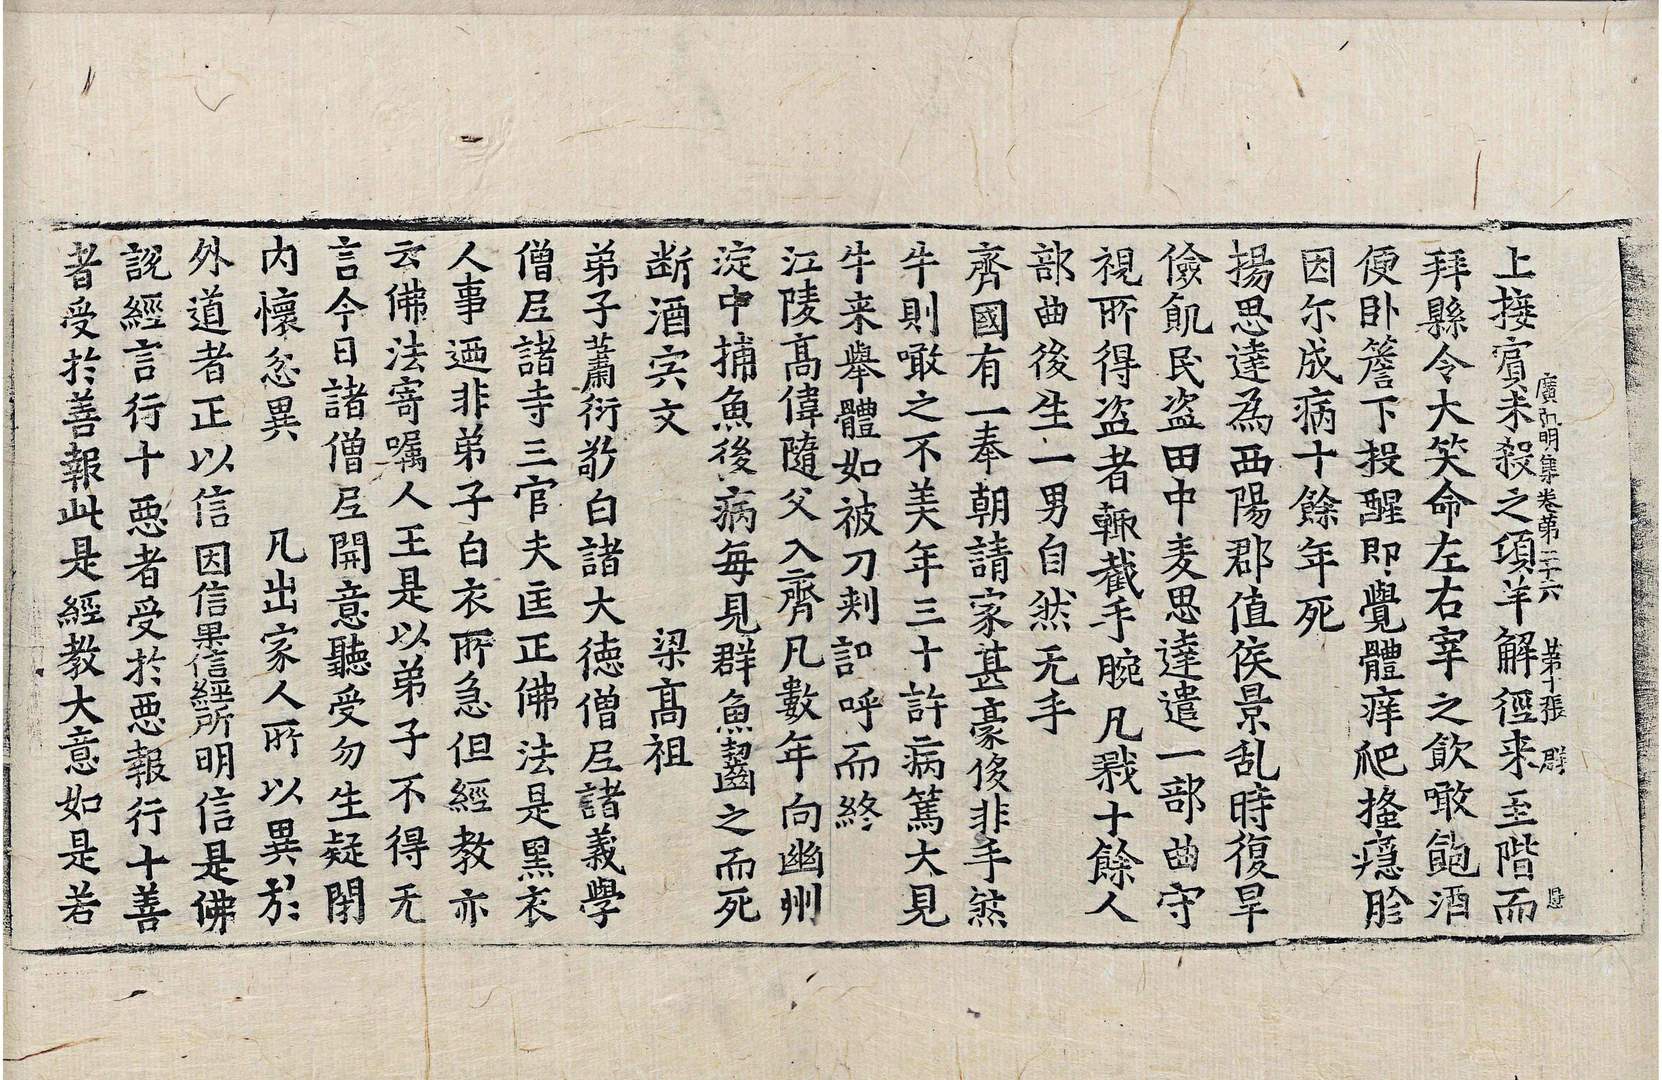 廣弘明集卷第二十六　第十張　群
上接賔未殺之頃羊解徑来至階而
拜縣令大笑命左右宰之飲噉飽酒
便卧簷下投醒即覺體痒爬搔癮胗
因尓成病十餘年死
揚思達爲西陽郡值侯景乱時復旱
儉飢民盗田中麦思達遣一部曲守
視所得盗者輙截手腕凡戮十餘人
部曲後生一男自然无手
齊國有一奉朝請家甚豪侈非手煞
牛則噉之不美年三十許病篤大見
牛来舉體如被刀刾訆呼而終
江陵高偉隨父入齊凡數年向幽州
淀中捕魚後病每見群魚齧之而死
断酒宍文　　梁高祖
弟子蕭衍敬白諸大德僧尼諸義學
僧尼諸寺三官夫匡正佛法是黑衣
人事迺非弟子白衣所急但經教亦
云佛法寄嘱人王是以弟子不得无
言今日諸僧尼開意聽受勿生疑閉
内懷忿異　凡出家人所以異於
外道者正以信因信果信經所明信是佛
說經言行十惡者受於惡報行十善
者受於善報此是經教大意如是若